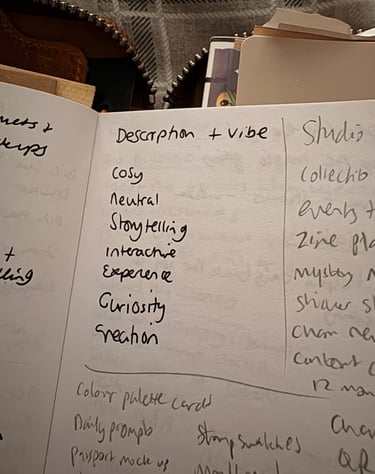 Descrption + vibe
cosy
neutral
Storytelling
interactive
Experience
Curiosity
Creation
Studio
collectib
events +
Zine pla
mystery
sticker s
charm ne
content c
12 mon
Colour palette cards
Daily prompts
Stamp swatches
Passport mock up
Char
QR